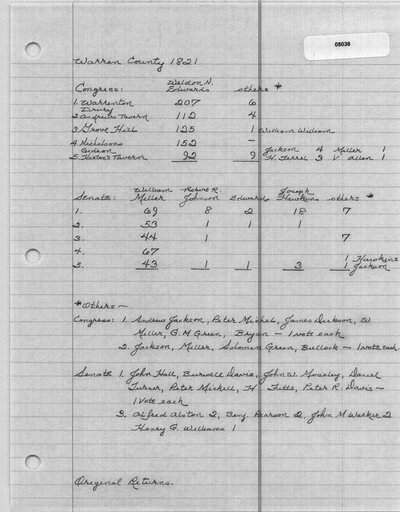 05036
Warren County 1821
Congress: Weldon N. Edwards others *
1. Warrenton 207 6
2. Drury Andrews Tavern 112 4
3 Grove Hill 125 1 William William
4 Nicholsons 152 —
5. Gideon Harton's Tavern 92 9 Jackson 4 Miller 1
H. Terrel 3 V Allen 1
Senate: William Miller Robert R. Johnson Edwards Joseph Hawkins others *
1. 69 8 2 18 7
2. 53 1 1 1
3. 44 1 7
4. 67
5. 43 1 1 3 1 Hawkins
1 Jackson
*Others —
Congress: 1. Andrew Jackson, Peter Michel, James Dickson, W
Miller, G. M Green, Bryan — 1 vote each
2. Jackson, Miller, Solomon Green, Bullock — 1 vote each.
Senate 1. John Hall, Burwell Davis, John W. Moseley, Daniel
Turner, Peter Mickell, H Fitts, Peter R. Davis —
1 vote each
3. Alfred Alston 2, Benj. Pearson 2, John M Walker 2
Henry G. Williams 1
Original Returns.